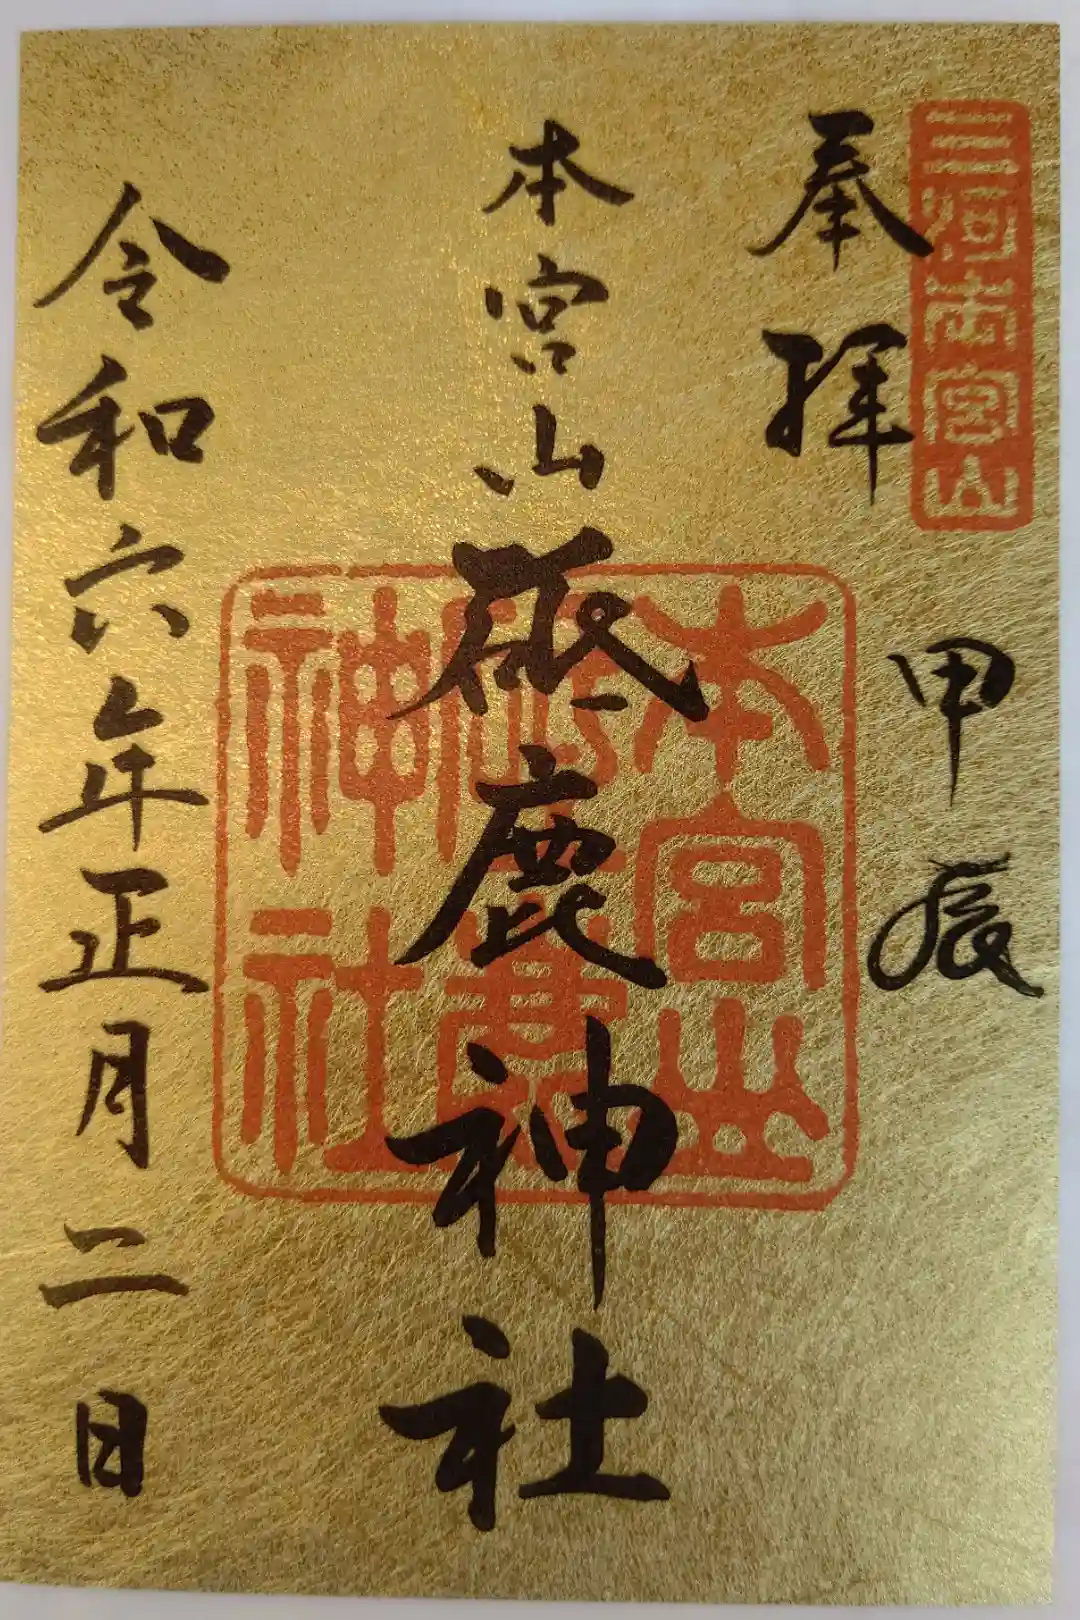 三河本宮山
奉拝
甲辰
本宮山砥鹿神社
本宮山
砥鹿
神社
令和六年正月二日